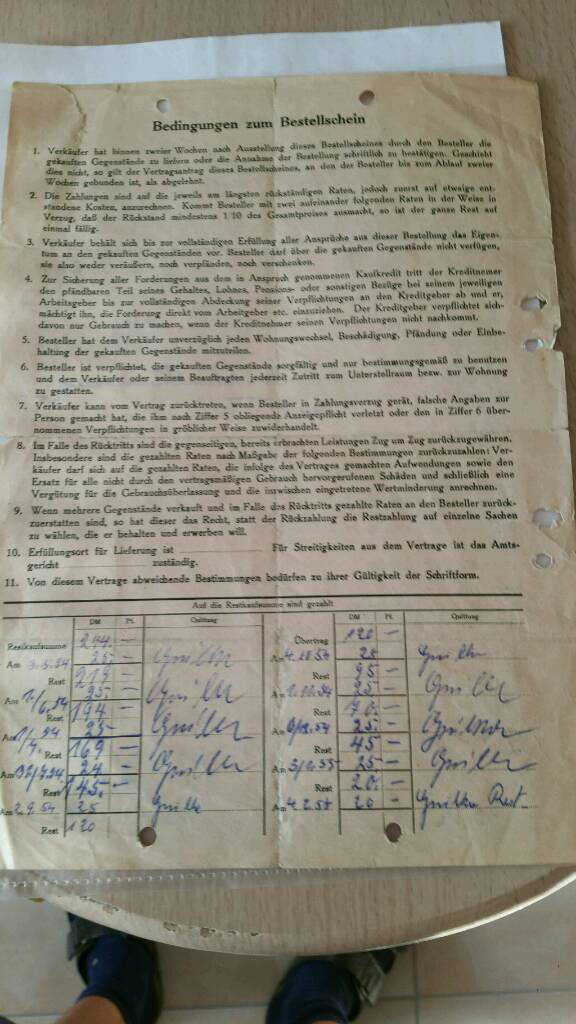 Bedingungen zum Bestellschein
1. Verkäufer hat binnen zweier Wochen nach Ausstellung dieses Bestellscheines durch den Besteller die
gekauften Gegenstände zu liefern oder die Annahme der Bestellung schriftlich zu bestätigen. Geschieht
dies nicht, so gilt der Vertragsantrag dieses Bestellscheines, an den der Besteller bis zum Ablauf zweier
Wochen gebunden ist, als abgelehnt.
2. Die Zahlungen sind auf die jeweils am längsten rückständigen Raten, jedoch zuerst auf etwaige ent-
standene Kosten, anzurechnen. Kommt Besteller mit zwei aufeinander folgenden Raten in der Weise in
Verzug, daß der Rückstand mindestens 1/10 des Gesamtpreises ausmacht, so ist der ganze Rest auf
einmal fällig.
3. Verkäufer behält sich bis zur vollständigen Erfüllung aller Ansprüche aus dieser Bestellung das Eigen-
tum an den gekauften Gegenständen vor. Besteller darf über die gekauften Gegenstände nicht verfügen,
sie also weder veräußern, noch verpfänden, noch verschenken.
4. Zur Sicherung aller Forderungen aus dem in Anspruch genommenen Kaufkredit tritt der Kreditnemer
den pfändbaren Teil seines Gehaltes, Lohnes, Pensions- oder sonstigen Bezüge bei seinem jeweiligen
Arbeitsgeber bis zur vollständigen Abdeckung seiner Verpflichtungen an den Kreditgeber ab und er,
mächtigt ihn, die Forderung direkt vom Arbeitgeber etc. einzuziehen. Der Kreditgeber verpflichtet sich-
davon nur Gebrauch zu machen, wenn der Kreditnemer seinen Verpflichtungen nicht nachkommt.
5. Besteller hat dem Verkäufer unverzüglich jeden Wohnungswechsel, Beschädigung, Pfändung oder Einbe-
haltung der gekauften Gegenstände mitzuteilen.
6. Besteller ist verpflichtet, die gekauften Gegenstände sorgfältig und nur bestimmungsgemäß zu benutzen
und dem Verkäufer oder seinem Beauftragten jederzeit Zutritt zum Unterstellraum bezw. zur Wohnung
zu gestatten.
7. Verkäufer kann vom Vertrag zurücktreten, wenn Besteller in Zahlungsverzug gerät, falsche Angaben zur
Person gemacht hat, die ihm nach Ziffer 5 obliegende Anzeigepflicht verletzt oder den in Ziffer 6 über-
nommenen Verpflichtungen in gröblicher Weise zuwiderhandelt.
8. Im Falle des Rücktritts sind die gegenseitigen, bereits erbrachten Leistungen Zug um Zug zurückzugewähren.
Insbesondere sind die gezahlten Raten nach Maßgabe der folgenden Bestimmungen zurückzuzahlen: Ver-
käufer darf sich auf die gezahlten Raten, die infolge des Vertrages gemachten Aufwendungen sowie den
Ersatz für alle nicht durch den vertragsmäßigen Gebrauch hervorgerufenen Schäden und schließlich eine
Vergütung für die Gebrauchsüberlassung und die inzwischen eingetretene Wertminderung anrechnen.
9. Wenn mehrere Gegenstände verkauft und im Falle des Rücktritts gezahlte Raten an den Besteller zurück-
zuerstatten sind, so hat dieser das Recht, statt der Rückzahlung die Restzahlung auf einzelne Sachen
zu wählen, die er behalten und erwerben will.
10. Erfüllungsort für Lieferung ist Für Streitigkeiten aus dem Vertrage ist das Amts-
gericht zuständig.
11. Von diesem Vertrage abweichende Bestimmungen bedürfen zu ihrer Gültigkeit der Schriftform.
Auf die Restkaufsumme sind gezahlt
DM Pf. Quittung DM Pf. Quittung
Restkaufsumme 244.— Übertrag 120 —
Am 3.5.54 25.- Am 4.10.54 25
Rest 219 — Rest 95 —
Am 25- Am 25-
Rest 194 — Rest 70. —
Am 25- Am 25.-
Rest 169 — Rest 45 —
Am 24 — Am 25-
Rest 145.— Rest 20. —
Am 2.9.54 25 Am 20 — Rest
Rest 120